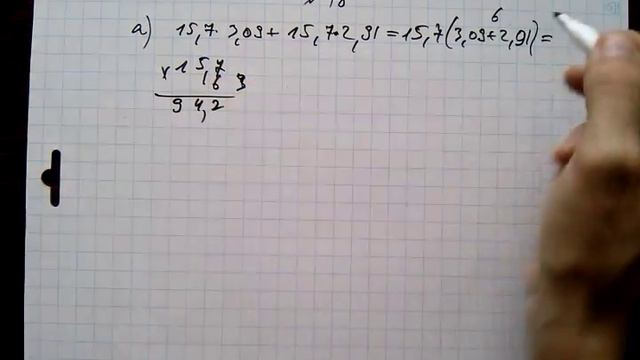 6
а) 15,7·3,09+15,7·2,91=15,7(3,09+2,91)=
x 15,7
6 3
94,2